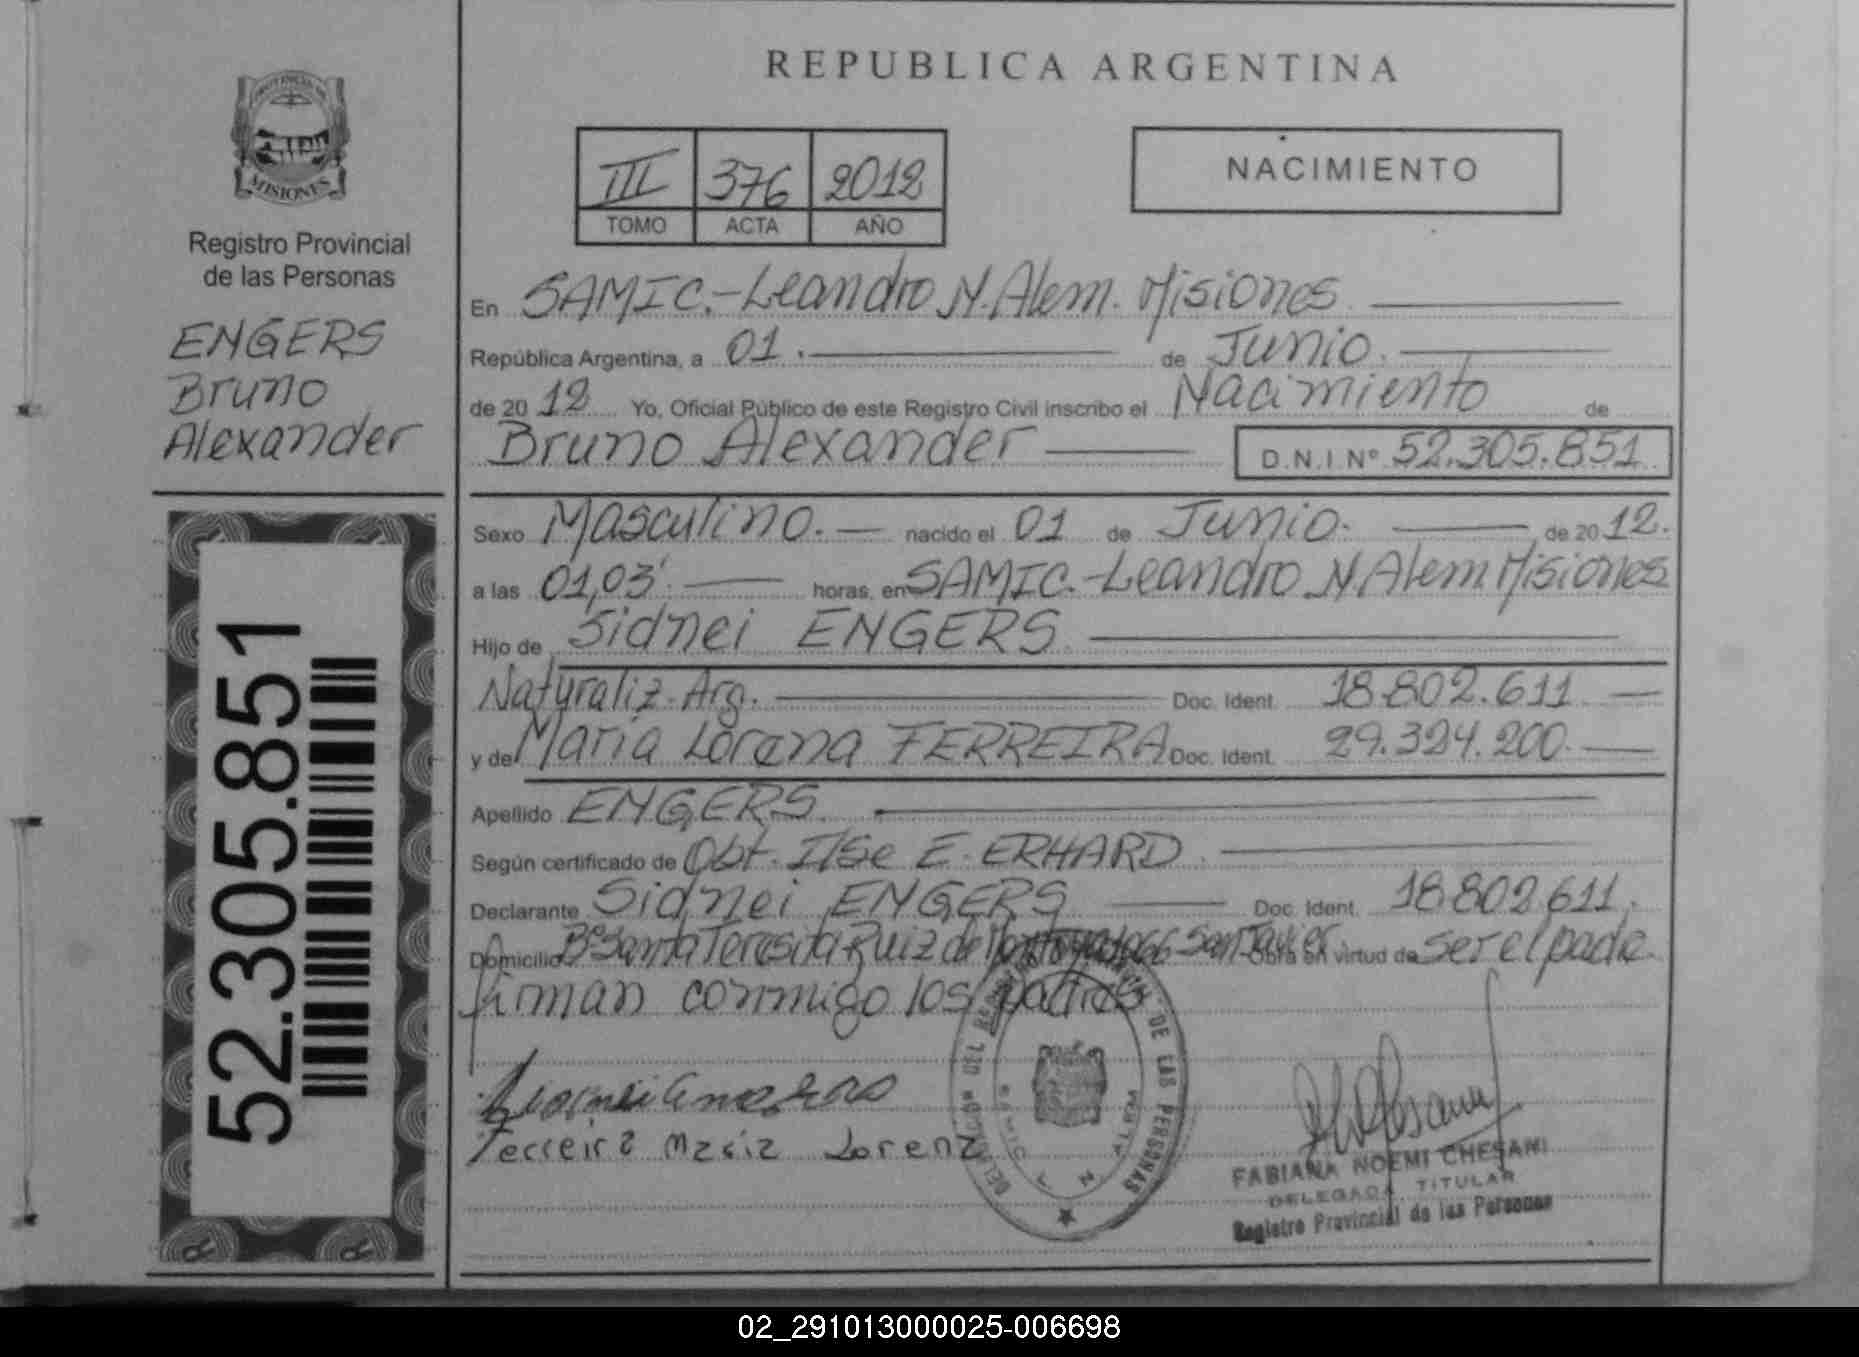 PROVINCIA DE
MISIONES
Registro Provincial
de las Personas
ENGERS
Bruno
Alexander
52.305.851
REPUBLICA ARGENTINA
III 376 2012
TOMO ACTA AÑO
NACIMIENTO
En SAMIC.-Leandro N. Alem. Misiones
República Argentina, a 01. de Junio.
de 20 12 Yo, Oficial Público de este Registro Civil inscribo el Nacimiento de
Bruno Alexander D.N.I Nº 52.305.851
Sexo Masculino. nacido el 01 de Junio. de 20 12.
a las 01,03' horas, en SAMIC.-Leandro N. Alem Misiones
Hijo de Sidnei ENGERS
Naturaliz. Arg. Doc. Ident. 18.802.611
y de Maria Lorena FERREIRA Doc. Ident. 29.324.200.
Apellido ENGERS
Según certificado de Obt. Ilse E. ERHARD
Declarante Sidnei ENGERS Doc. Ident. 18.802.611.
Domicilio Bº Santa Teresita Ruiz de Montoya 1066 San Javier Obra en virtud de ser el padre
firman conmigo los padres
Ferreira Maria Lorena
DE LAS PERSONAS
FABIANA NOEMI CHESANI
DELEGADA TITULAR
Registro Provincial de las Personas
02_291013000025-006698